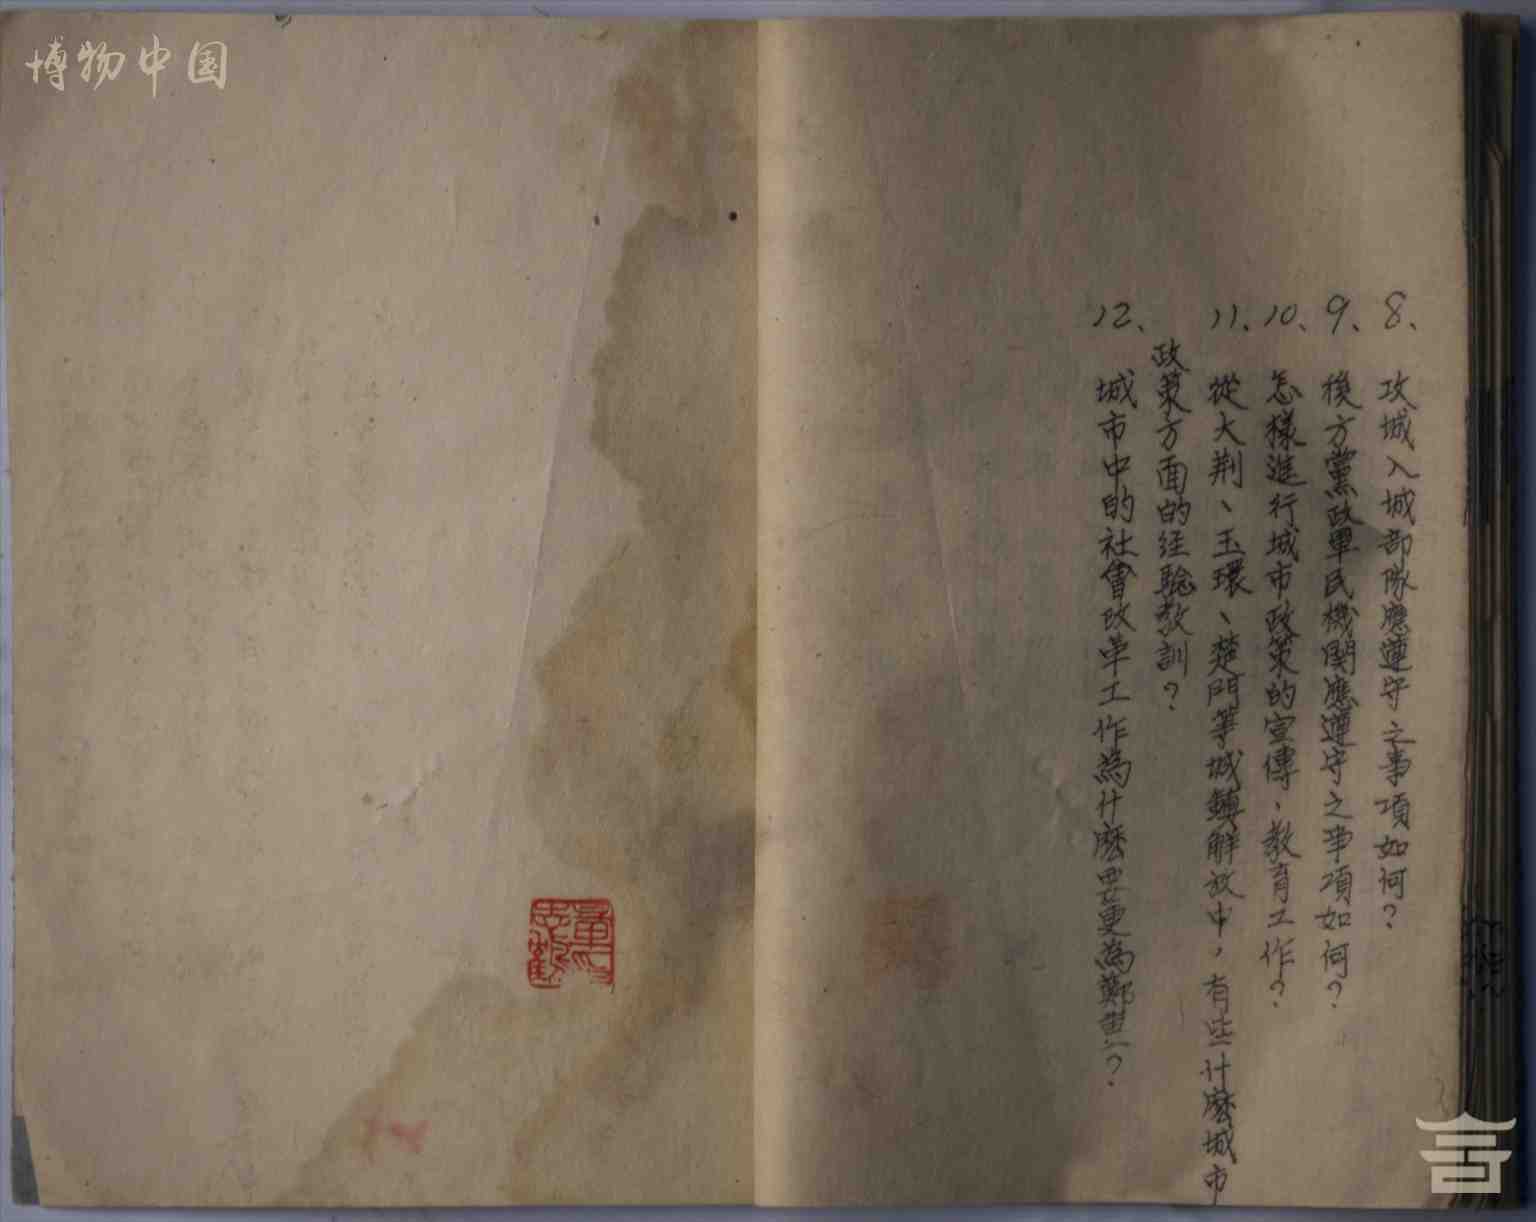 博物中国
8、攻城入城部隊應遵守之事項如何？
9、後方黨政軍民機関應遵守之事項如何？
10、怎樣進行城市政策的宣傳、教育工作？
11、從大荆、玉環、楚門等城鎮解放中，有些什麽城市
政策方面的经驗教訓？
12、城市中的社會改革工作為什麽要更為鄭重？